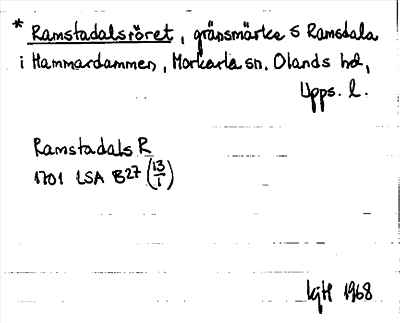 * Ramstadalsröret, gränsmärke S Ramsdala
i Hammardammen, Morkarla sn, Olands hd,
Upps. l.
Ramstadals R
1701 LSA B27 (13/1)
KjH 1968